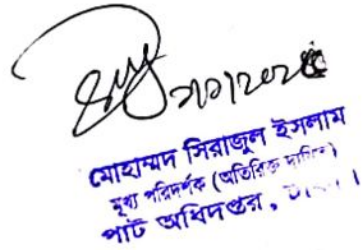 মোহাম্মদ সিরাজুল ইসলাম
মুখ্য পরিদর্শক (অতিরিক্ত দায়িত্ব)
পাট অধিদপ্তর,